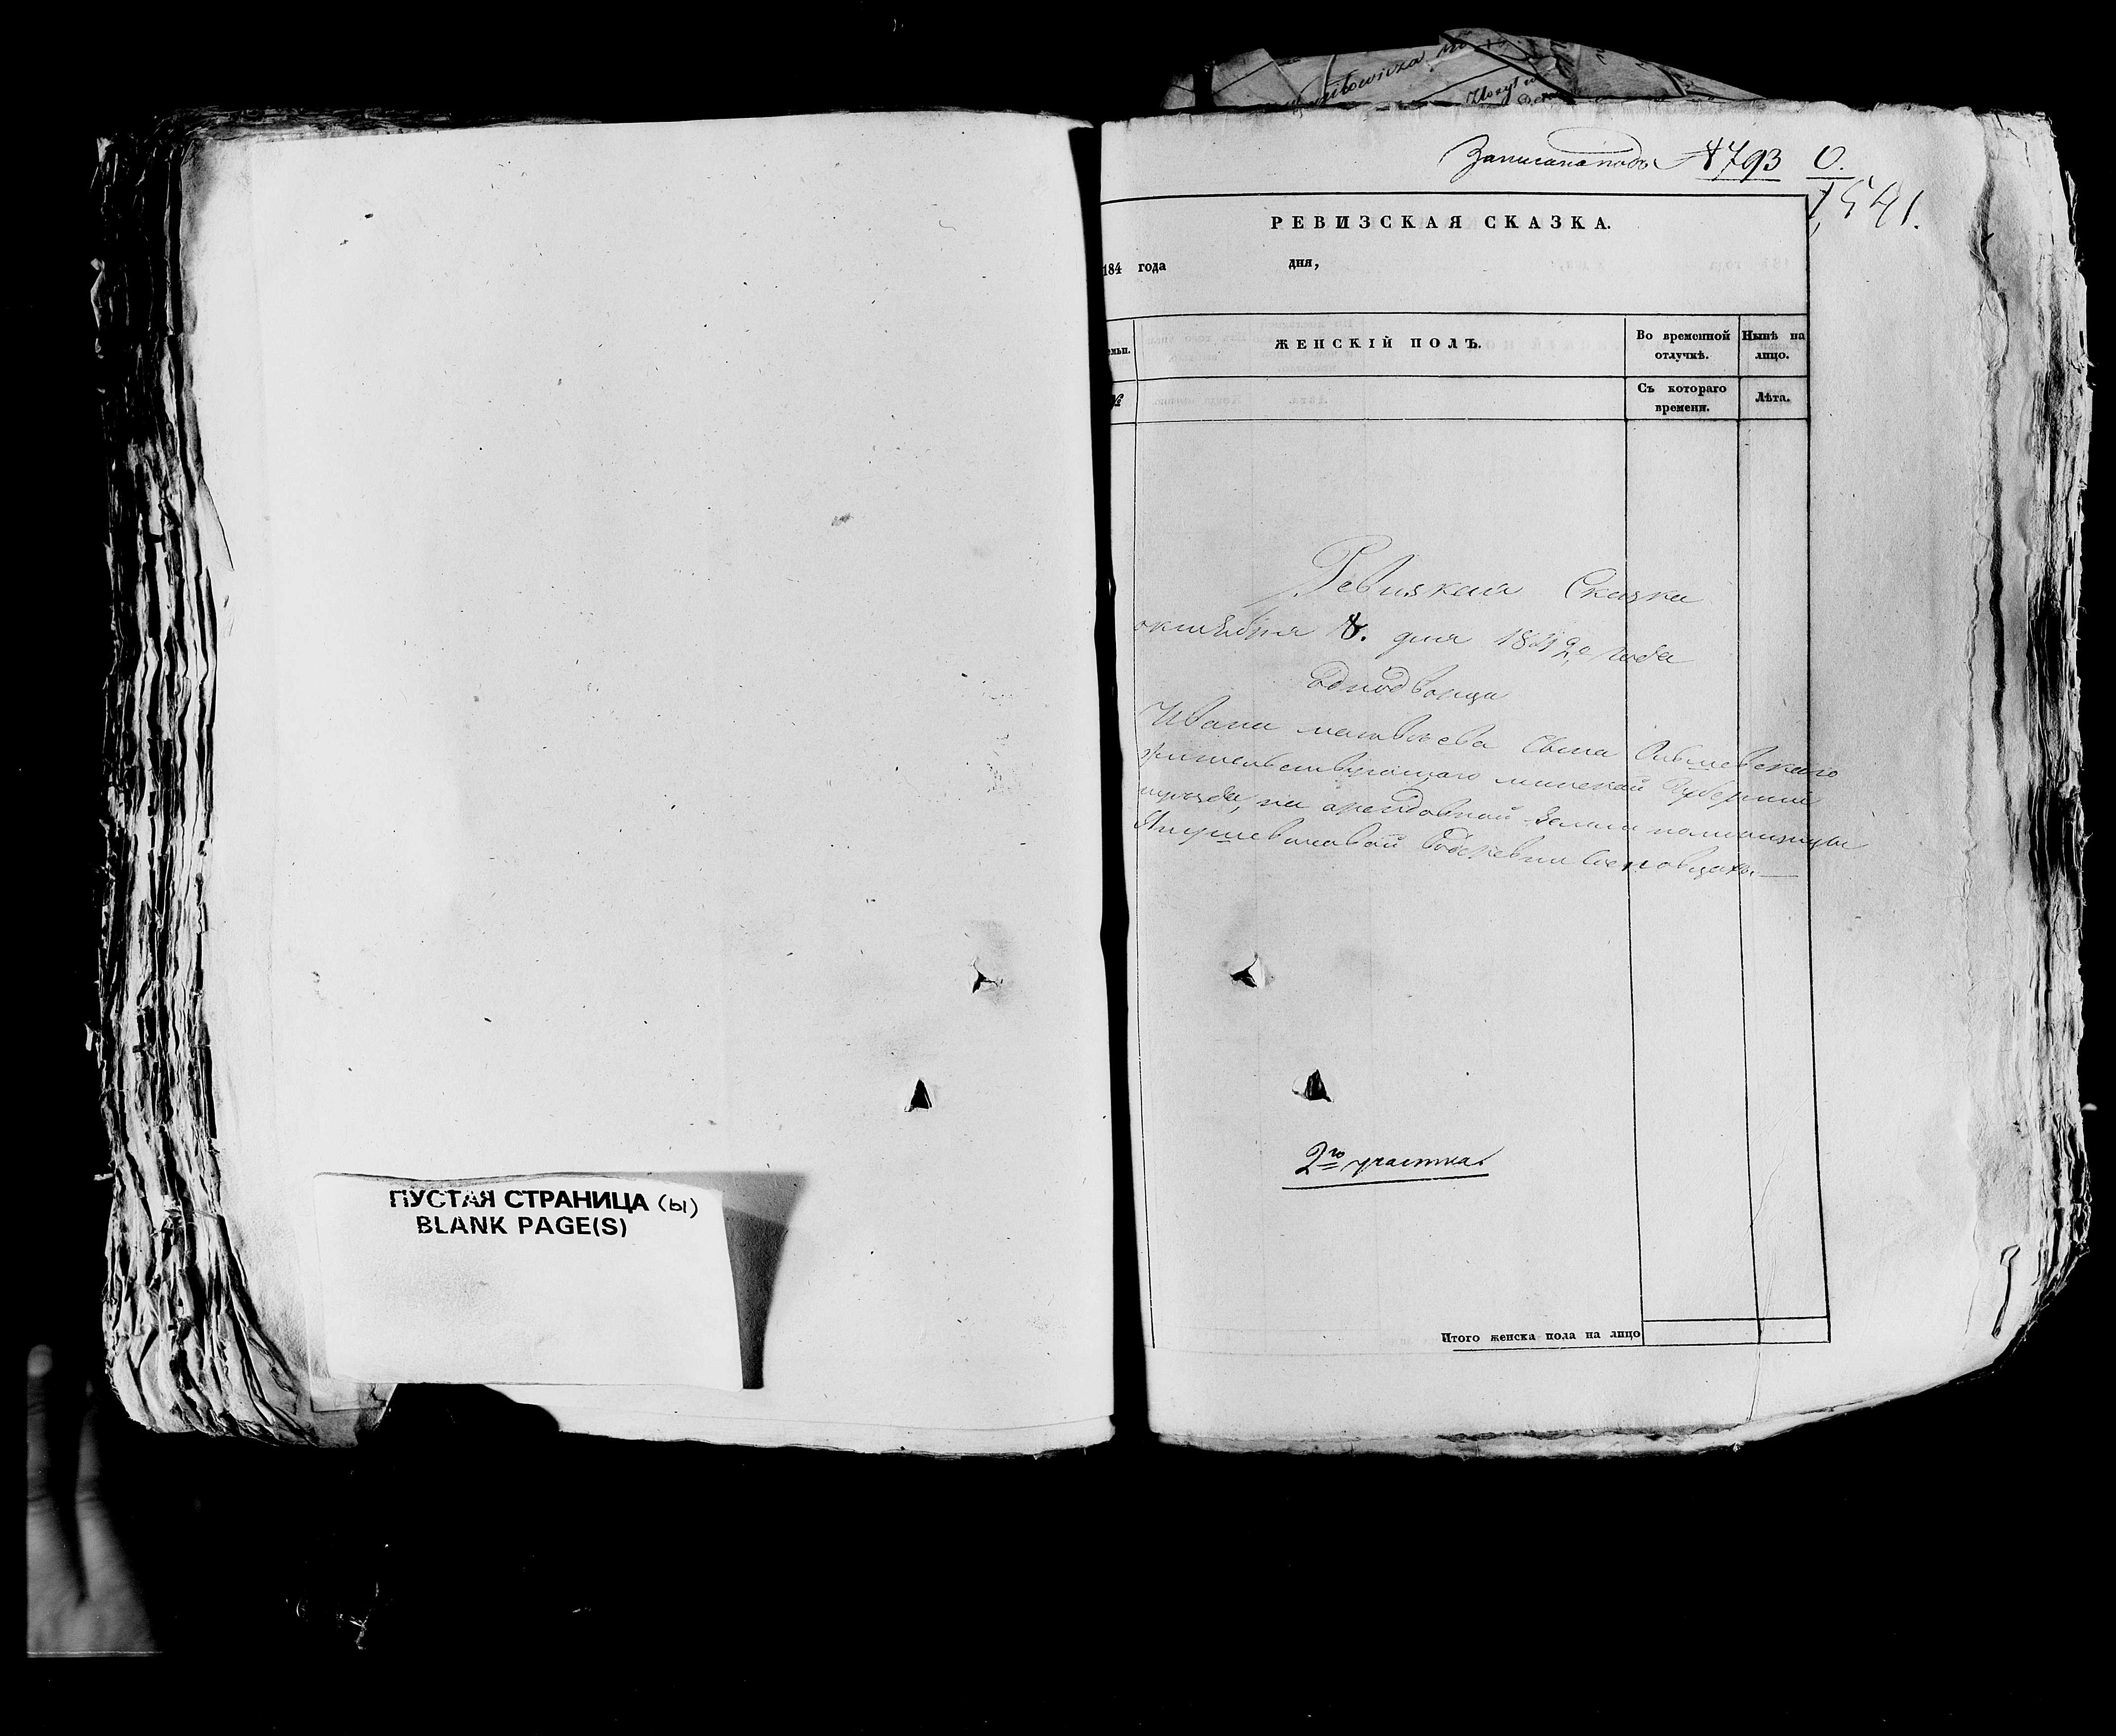 ПУСТАЯ СТРАНИЦА (ы)
BLANK PAGE(S)
Записана подъ № 793
1,541.
РЕВИЗСКАЯ СКАЗКА.
184 года дня,
ЖЕНСКІЙ ПОЛЪ.
Во временной отлучкѣ.
Нынѣ на лицо.
№
Съ котораго времени.
Лѣта.
Ревизкая Сказка
октября 8. дня 1842 года
Однодворца
Ивана матвѣева Сына
жительствующаго минской Губерніи
уѣзда, на арендовной земли помѣщицы
2го участка
Итого женска пола на лицо